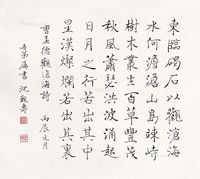 東臨碣石以觀滄海
水何澹澹山島竦峙
樹木叢生百草豐茂
秋風蕭瑟洪波涌起
日月之行若出其中
星漢燦爛若出其裏
曹孟德觀滄海詩 丙辰 月
弟屬書 沈覲壽